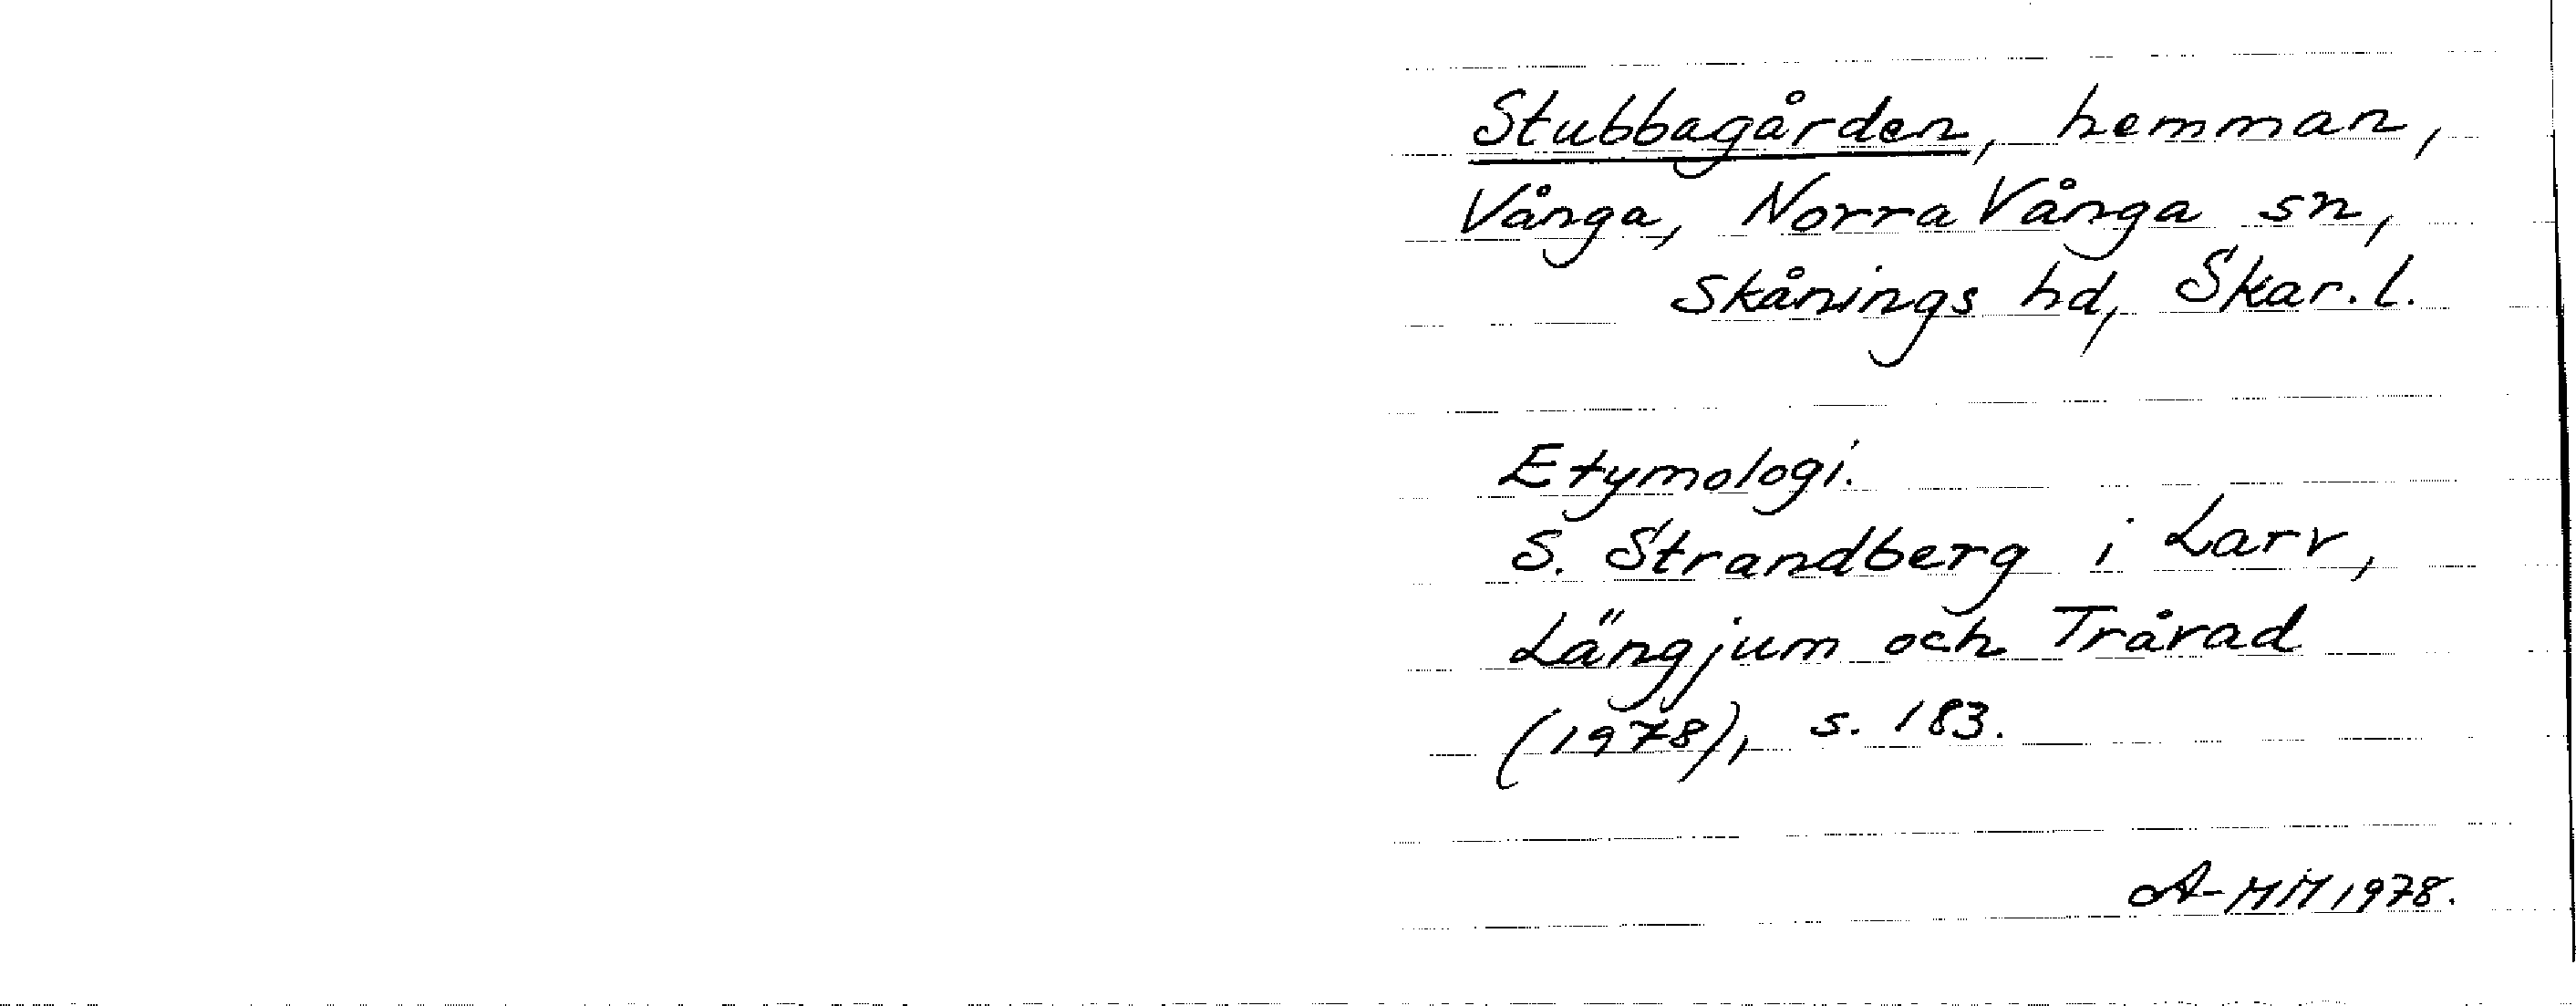 Stubbagården, hemman,
Vånga, Norra Vånga sn,
Skånings hd, Skar. l.
Etymologi.
S. Strandberg i Larv,
Längjum och Trårad
(1978), s. 183.
A-MM 1978.